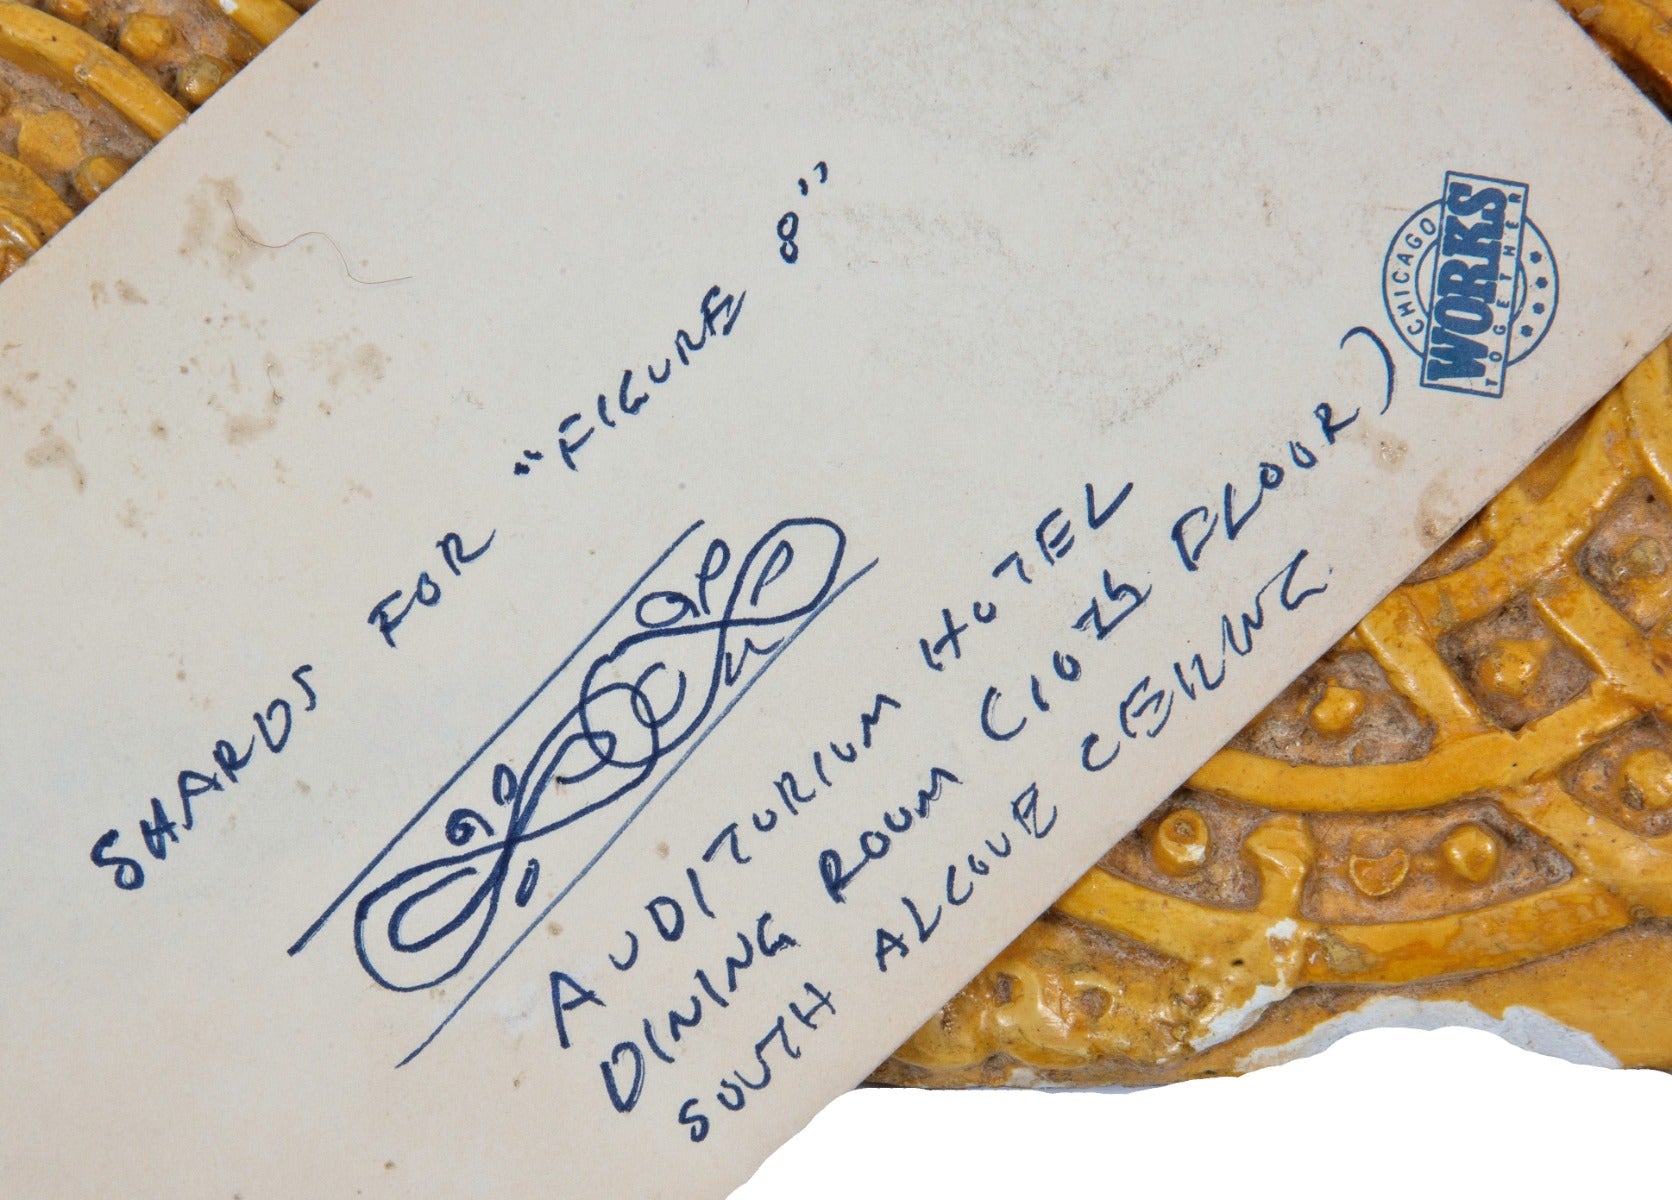 SHARDS FOR "FIGURE 8"
AUDITORIUM HOTEL
DINING ROOM (10Th FLOOR)
SOUTH ALCOVE CEILING
CHICAGO
WORKS
TOGETHER